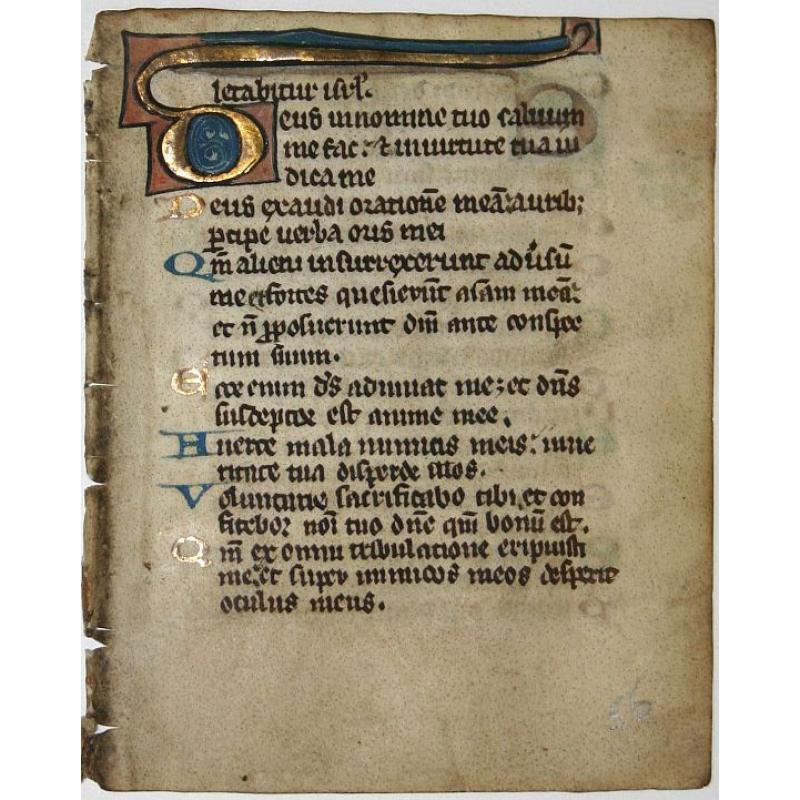 letabitur isrl.
Deus in nomine tuo saluum
me fac: & in uirtute tua iu
dica me
Deus exaudi oratione᷒ meā: aurib;
ꝑcipe uerba oris mei
Qm̄ alieni insurrexerunt aduersū
me et fortes quesierūt aīam meā:
et n̄ ꝓposuerunt dm̄ ante conspec
tum suum.
Ecce enim ds̄ adiuuat me: et dn̄s
susceptor est anime mee.
Auerte mala inimicis meis: in ue
ritate tua disperde illos.
Voluntarie sacrificabo tibi et con
fitebor noī tuo dn̄e qm̄ bonū est.
Qm̄ ex omni tribulatione eripuisti
me: et super inimicos meos despexit
oculus meus.
56